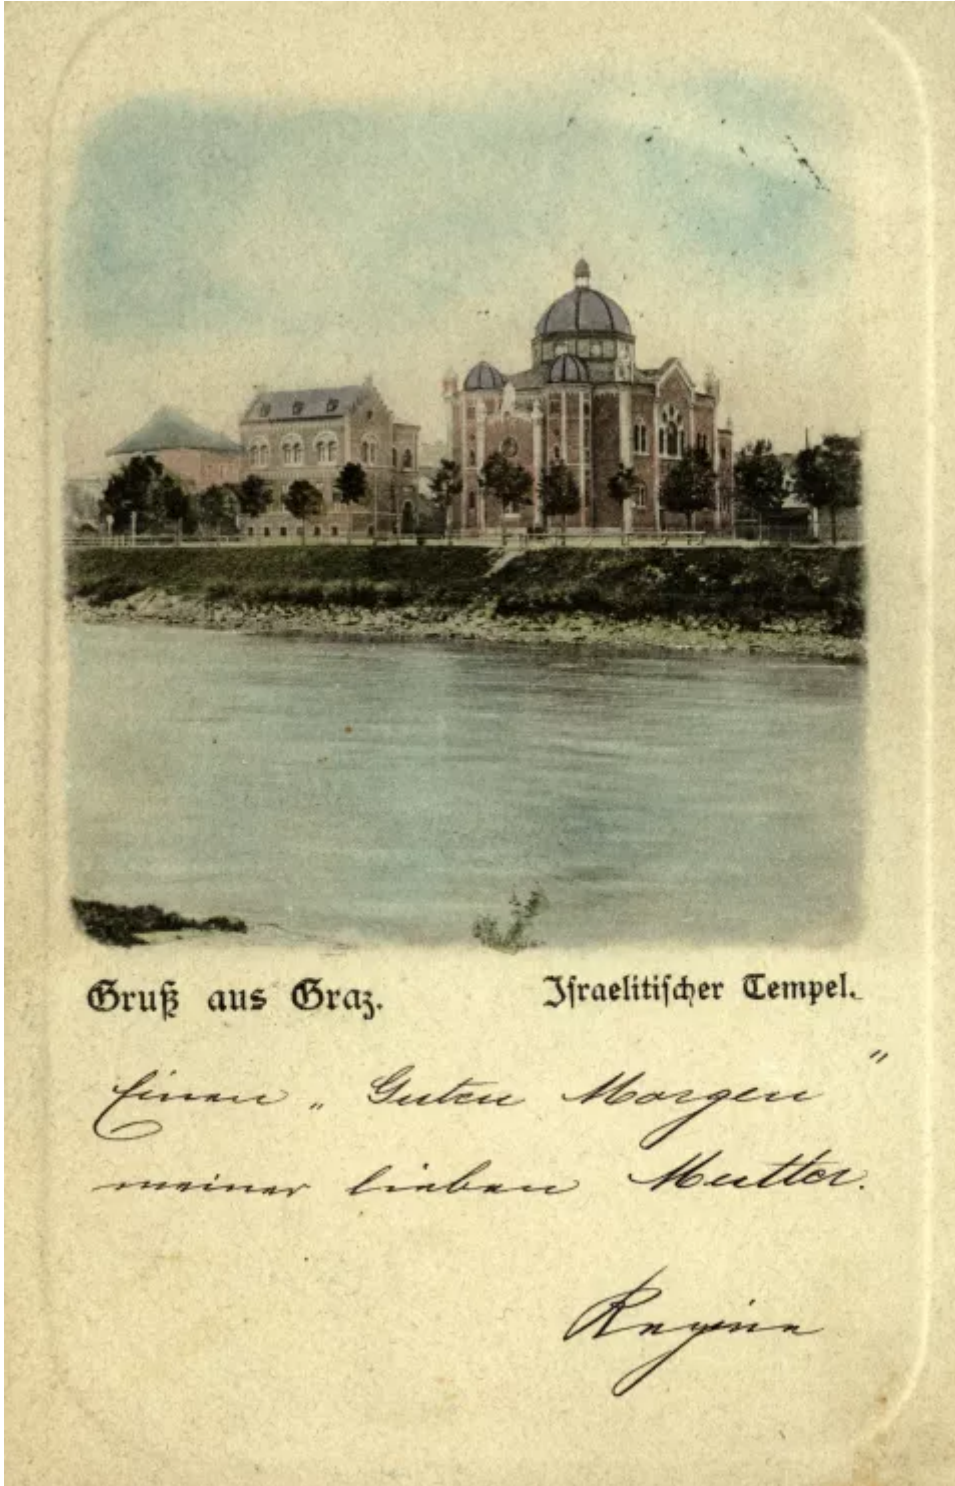 Gruß aus Graz.
Israelitischer Tempel.
Einen „Guten Morgen“
meiner lieben Mutter.
Regine